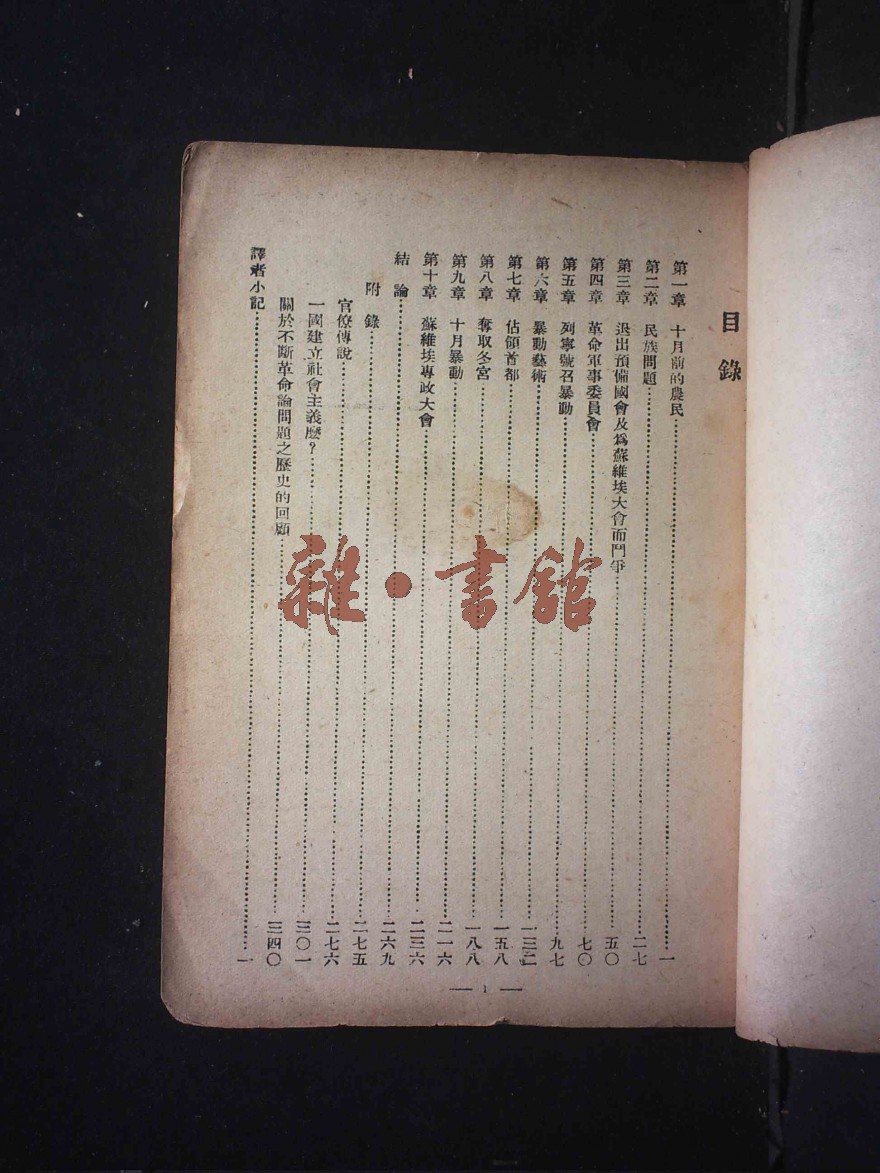 目錄
第一章 十月前的農民 一
第二章 民族問題 二七
第三章 退出預備國會及爲蘇維埃大會而鬥爭 五〇
第四章 革命軍事委員會 七〇
第五章 列寧號召暴動 九七
第六章 暴動藝術 一三二
第七章 佔領首都 一五八
第八章 奪取冬宮 一八八
第九章 十月暴動 二一六
第十章 蘇維埃專政大會 二三六
結論 二六九
附錄 二七五
官僚傳說 二七六
一國建立社會主義麽？ 三〇一
關於不斷革命論問題之歷史的回顧 三四〇
譯者小記 一
— 1 —
雜·書館